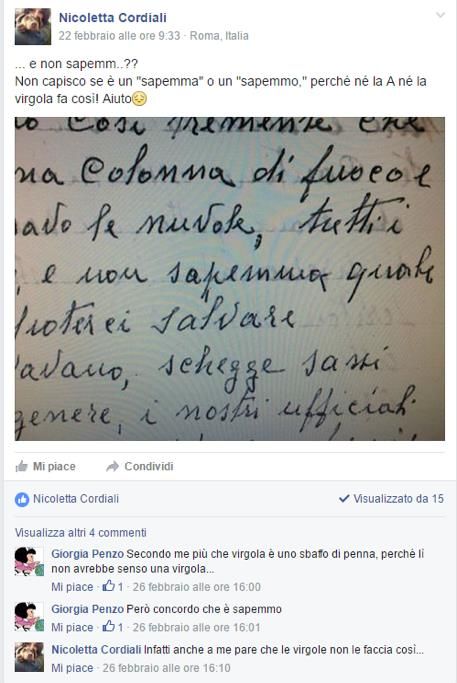 Nicoletta Cordiali
22 febbraio alle ore 9:33 · Roma, Italia
... e non sapemm..??
Non capisco se è un "sapemma" o un "sapemmo," perché né la A né la
virgola fa così! Aiuto😔
così tremente che
na colonna di fuoco e
avo le nuvole, tutti i
, e non sapemmo quale
poterci salvare
avano, schegge sassi
genere, i nostri ufficiali
Mi piace Condividi
Nicoletta Cordiali Visualizzato da 15
Visualizza altri 4 commenti
Giorgia Penzo Secondo me più che virgola è uno sbaffo di penna, perché lì
non avrebbe senso una virgola...
Mi piace · 1 · 26 febbraio alle ore 16:00
Giorgia Penzo Però concordo che è sapemmo
Mi piace · 1 · 26 febbraio alle ore 16:01
Nicoletta Cordiali Infatti anche a me pare che le virgole non le faccia così...
Mi piace · 26 febbraio alle ore 16:10